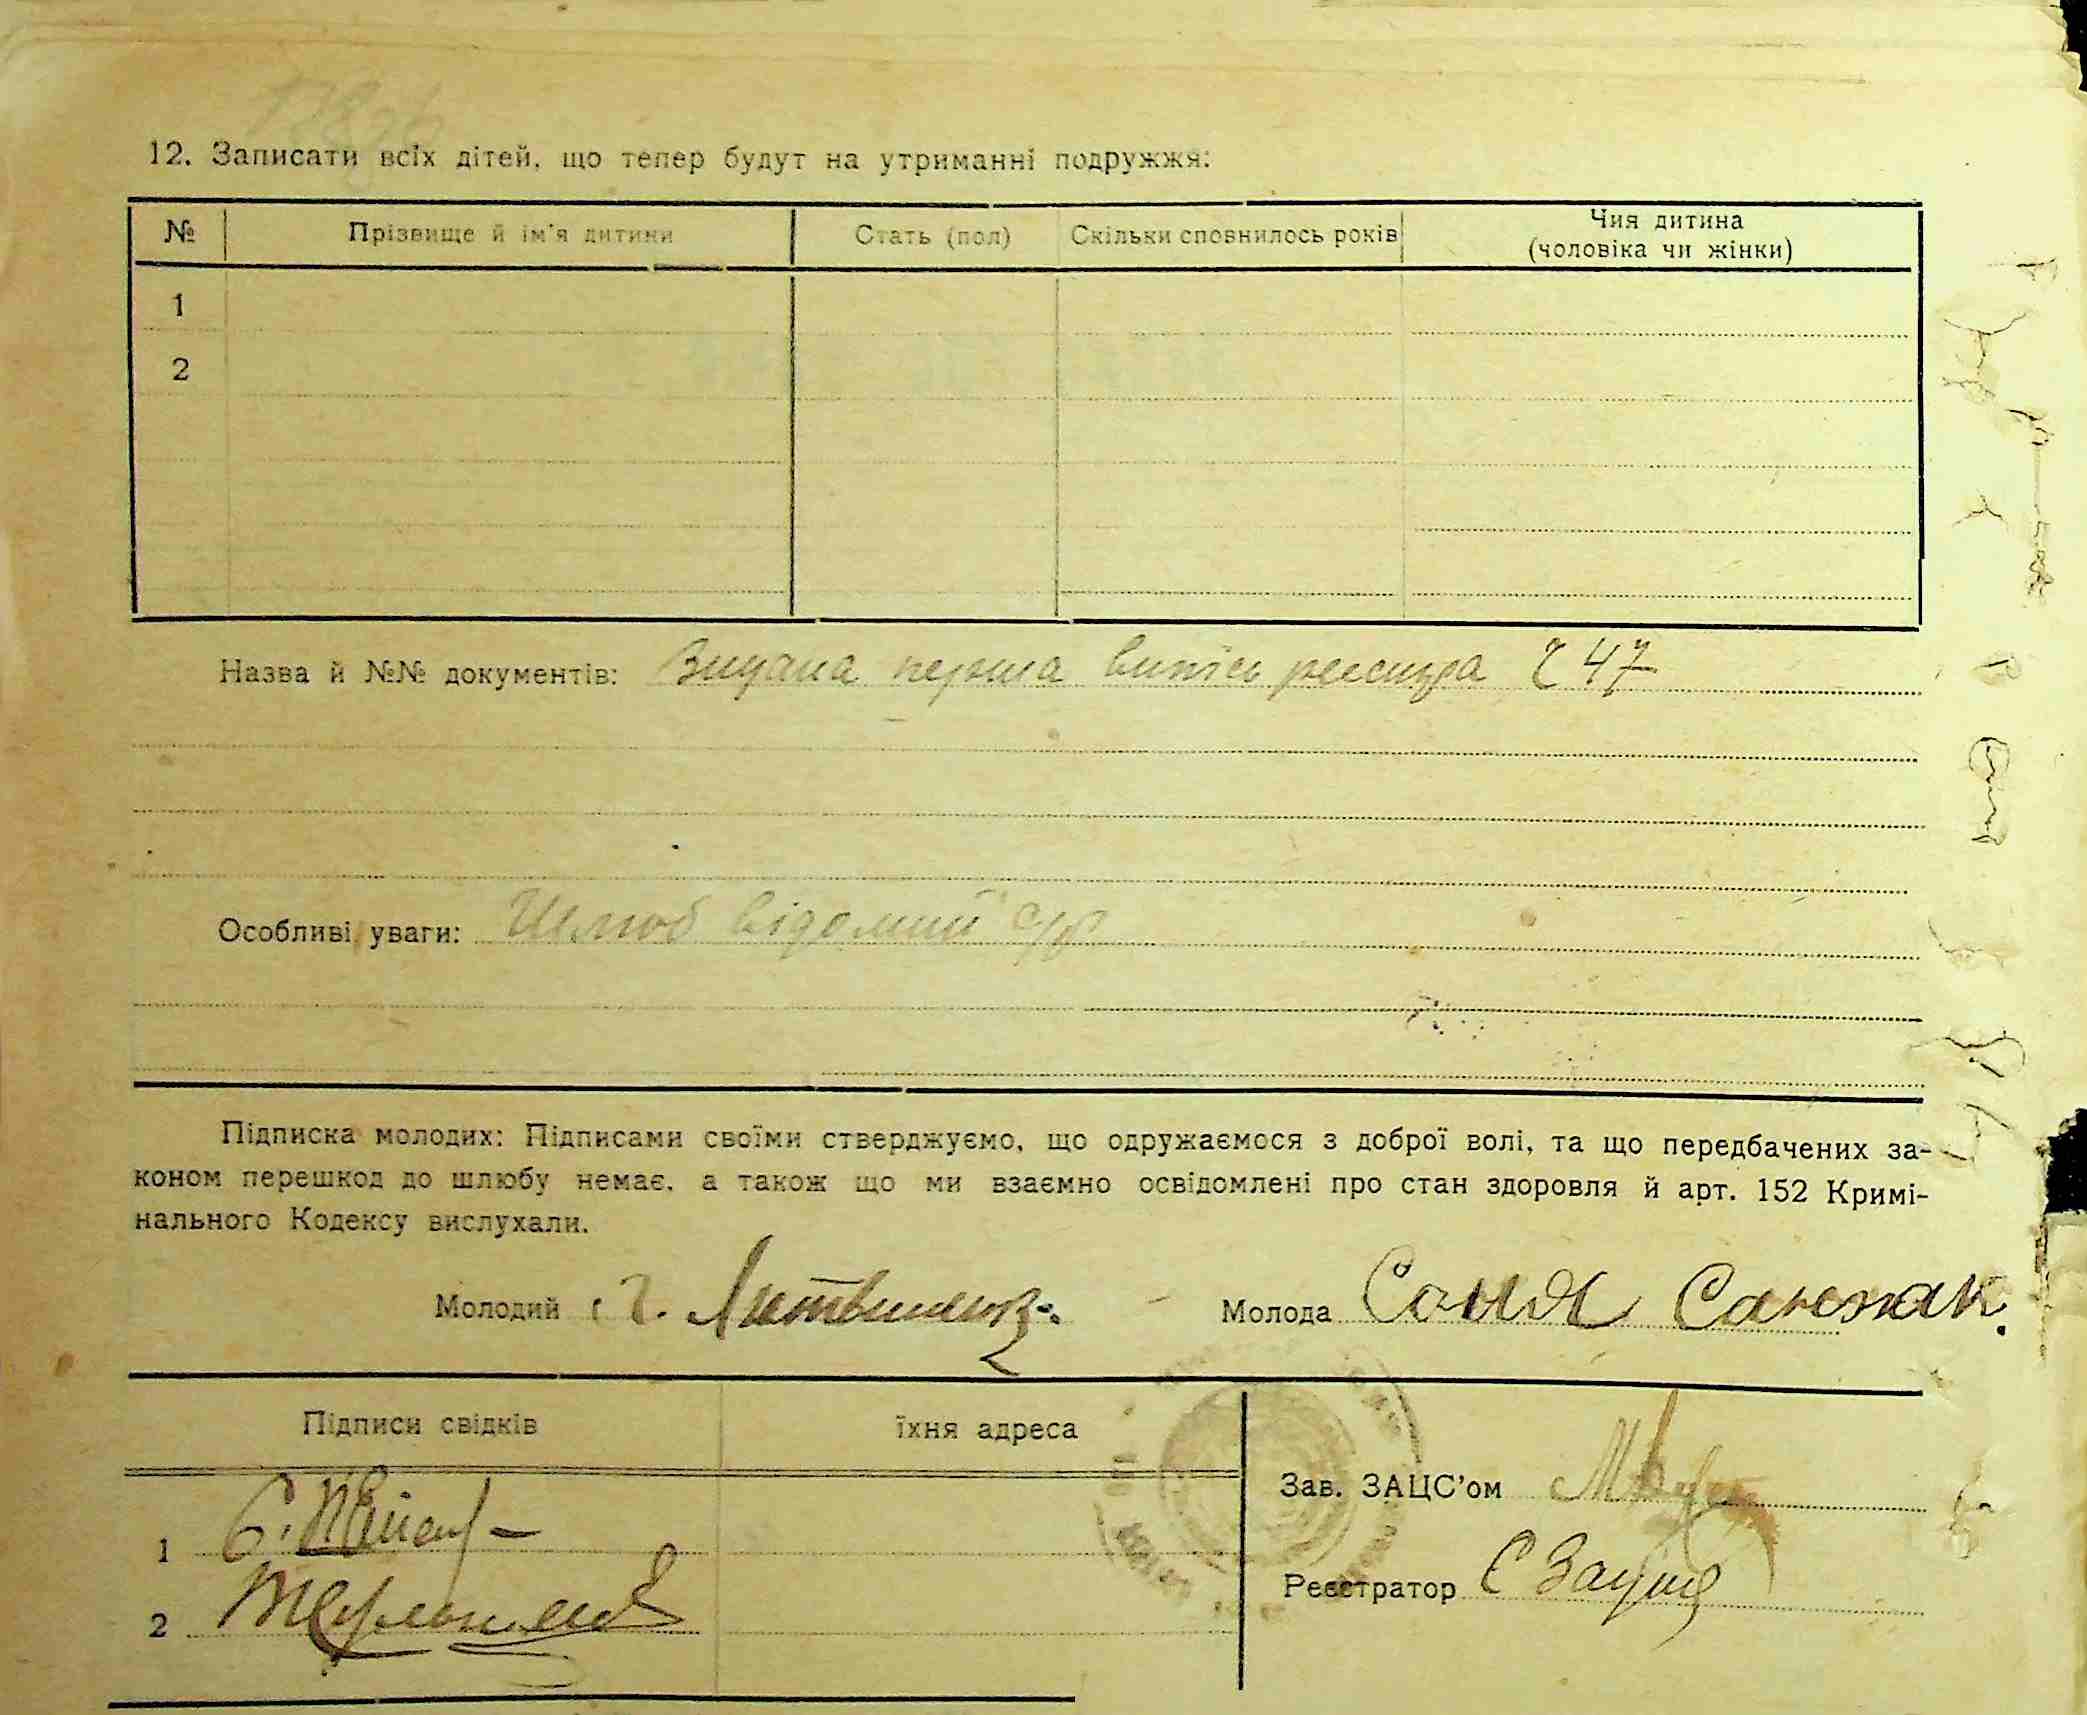 12. Записати всіх дітей, що тепер будут на утриманні подружжя:
№ Прізвище й ім'я дитини Стать (пол) Скільки сповнилось років Чия дитина
(чоловіка чи жінки)
1
2
Назва й №№ документів: Видана перша випись реєстра 47
Особливі уваги: Шлюб відомий
Підписка молодих: Підписами своїми стверджуємо, що одружаємося з доброї волі, та що передбачених за-
коном перешкод до шлюбу немає, а також що ми взаємно освідомлені про стан здоровля й арт. 152 Кримі-
нального Кодексу вислухали.
Молодий Молода Соня
Підписи свідків їхня адреса
Зав. ЗАЦС'ом
1
Реєстратор
2